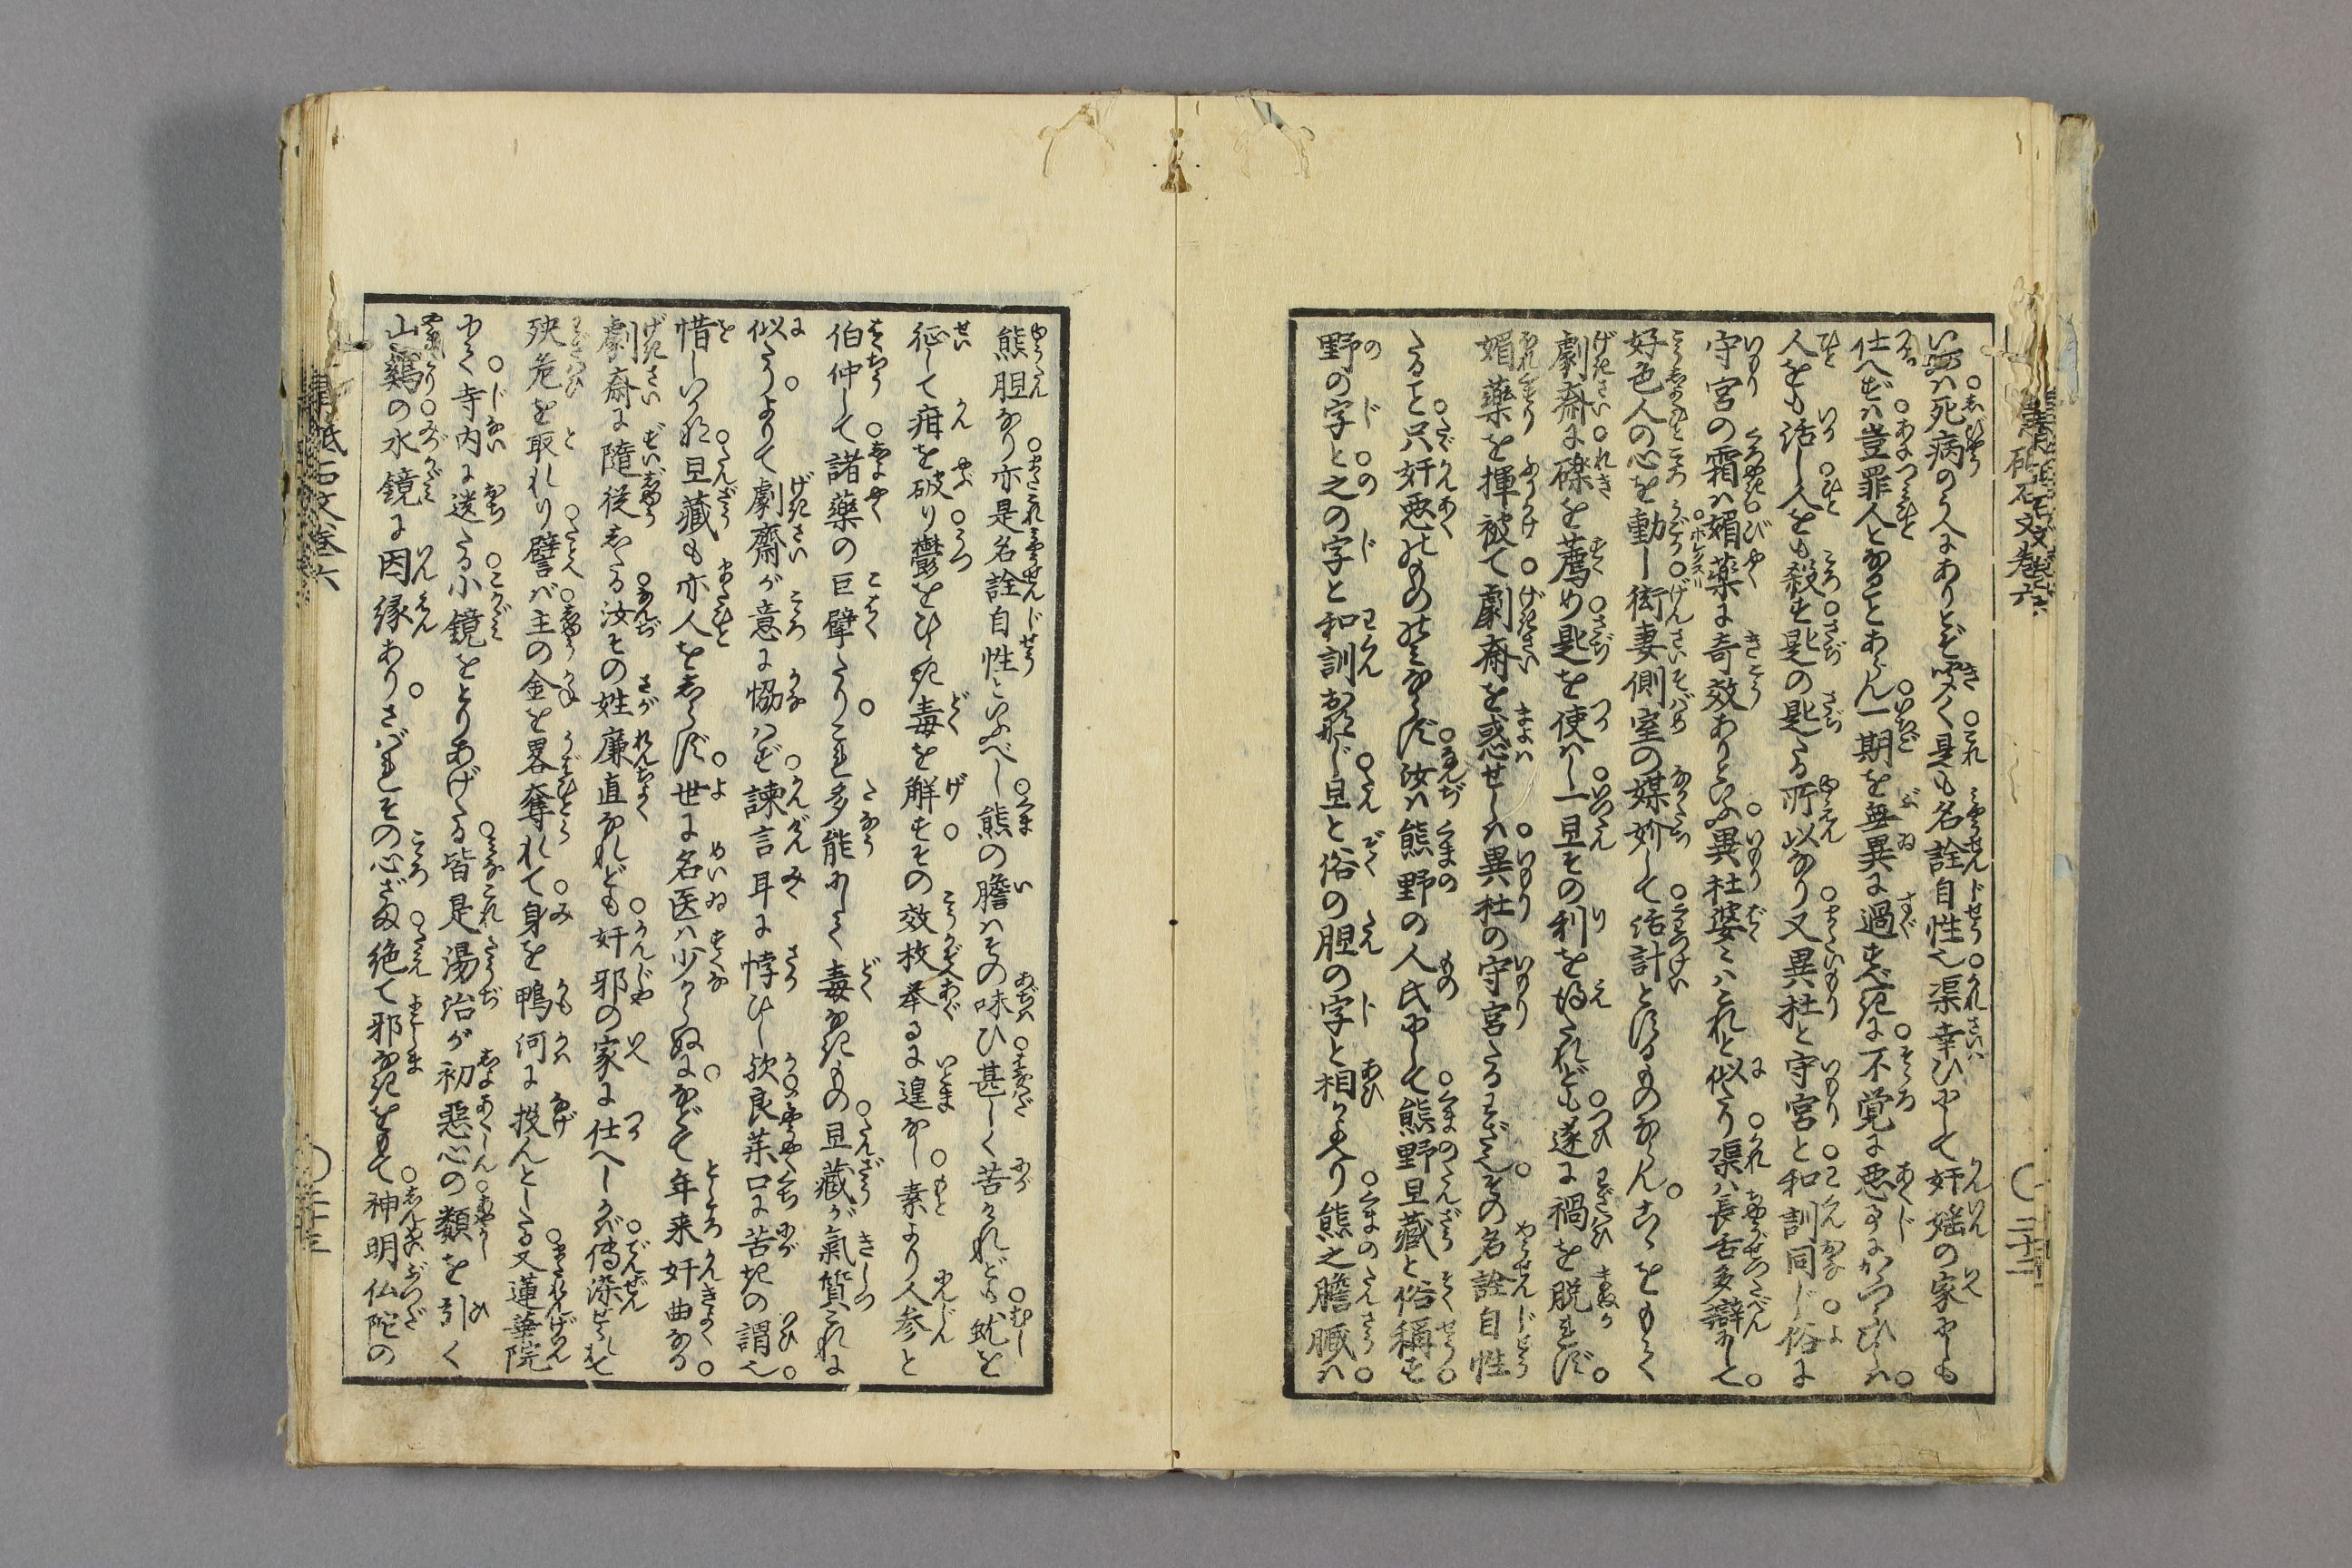 い毒ハ死病のう人にありとぞ聞く是も名詮自性也渠幸ひにして奸婬の家にしも
仕へずハ豈罪人となることあらん一期を無異に過すべきに不覚に悪事にかゝづらひしハ
人をも活し人をも殺す匙の匙たる所以なり又異杜と守宮と和訓同じ俗に
守宮の霜ハ媚藥に奇效ありといふ異杜婆ミハこれと似たり渠ハ長舌多辯にして
好色人の心を動し衒妻側室の媒妁して活計とするものならんこゝをもて
劇斎に礫を薦め匙を使ハし一旦その利を得たれども遂に禍を脱れず
媚藥を揮被て劇斎を惑せしハ異杜の守宮たるわざ也その名詮自性
たること只奸悪のものゝみならず汝ハ熊野の人氏にして熊野旦藏と俗稱す
野の字と之の字と和訓おなじ旦と俗の胆の字と相かよへり熊之膽臓ハ
熊胆なり亦是名詮自性といふべし熊の膽ハその味ひ甚しく苦けれども蚘を
征して疳を破り鬱をひらき毒を解すその效枚挙るに遑なし素より人参と
伯仲して諸藥の巨擘たりこれ多能にして毒なきもの旦藏が氣質これに
似たりよりて劇齋が意に恊ハず諫言耳に悖ひし欤良薬口に苦きの謂也
惜しいかな旦藏も亦人をしらず世に名医ハ少からぬになどて年来奸曲なる
劇斎に隨従したる汝その姓廉直なれども奸邪の家に仕へしかバ傳染せられて
殃危を取れり譬バ主の金を畧奪れて身を鴨河に投んとしたる又蓮華院
にて寺内に送たる小鏡をとりあげたる皆是湯治が初悪心の類を引く
山鷄の水鏡に因縁ありさバれその心ざま絶て邪なきをもて神明仏陀の